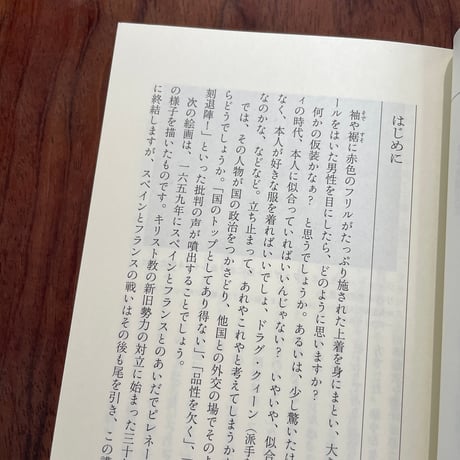 はじめに
袖や裾に赤色のフリルがたっぷり施された上着を身にまとい、大
ールをはいた男性を目にしたら、どのように思いますか？
何かの仮装かなぁ？　と思うでしょうか。あるいは、少し驚いたけ
ィの時代、本人に似合っていればいいんじゃない？　いやいや、似合
なく、本人が好きな服を着ればいいでしょ、ドラグ・クィーン（派手
なのかな、などなど。立ち止まって、あれやこれやと考えてしまうか
では、その人物が国の政治をつかさどり、他国との外交の場でそのよ
らどうでしょうか。「国のトップとしてあり得ない」、「品性を欠く」、「
刻退陣！」といった批判の声が噴出することでしょう。
次の絵画は、一六五九年にスペインとフランスとのあいだでピレネー
の様子を描いたものです。キリスト教の新旧勢力の対立に始まった三十
に終結しますが、スペインとフランスの戦いはその後も尾を引き、この